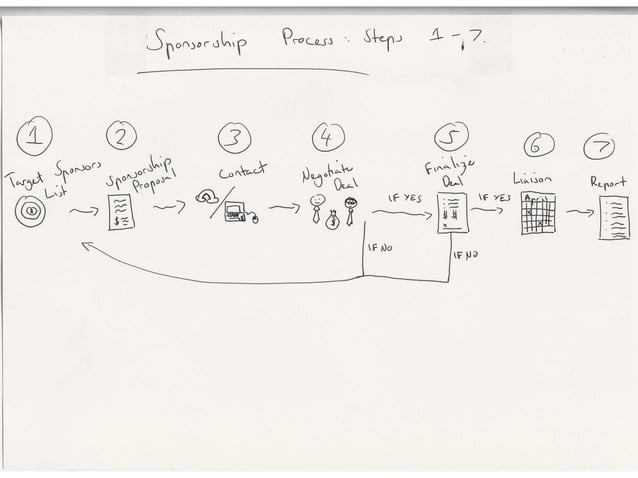 Sponsorship Process: Steps 1 → 7.
1
2
3
4
5
6
7
Target Sponsors
List
Sponsorship
Proposal
Contact
Negotiate
Deal
Finalize
Deal
Liaison
Report
IF YES
IF YES
IF NO
IF NO
$
$
$ $
x
April